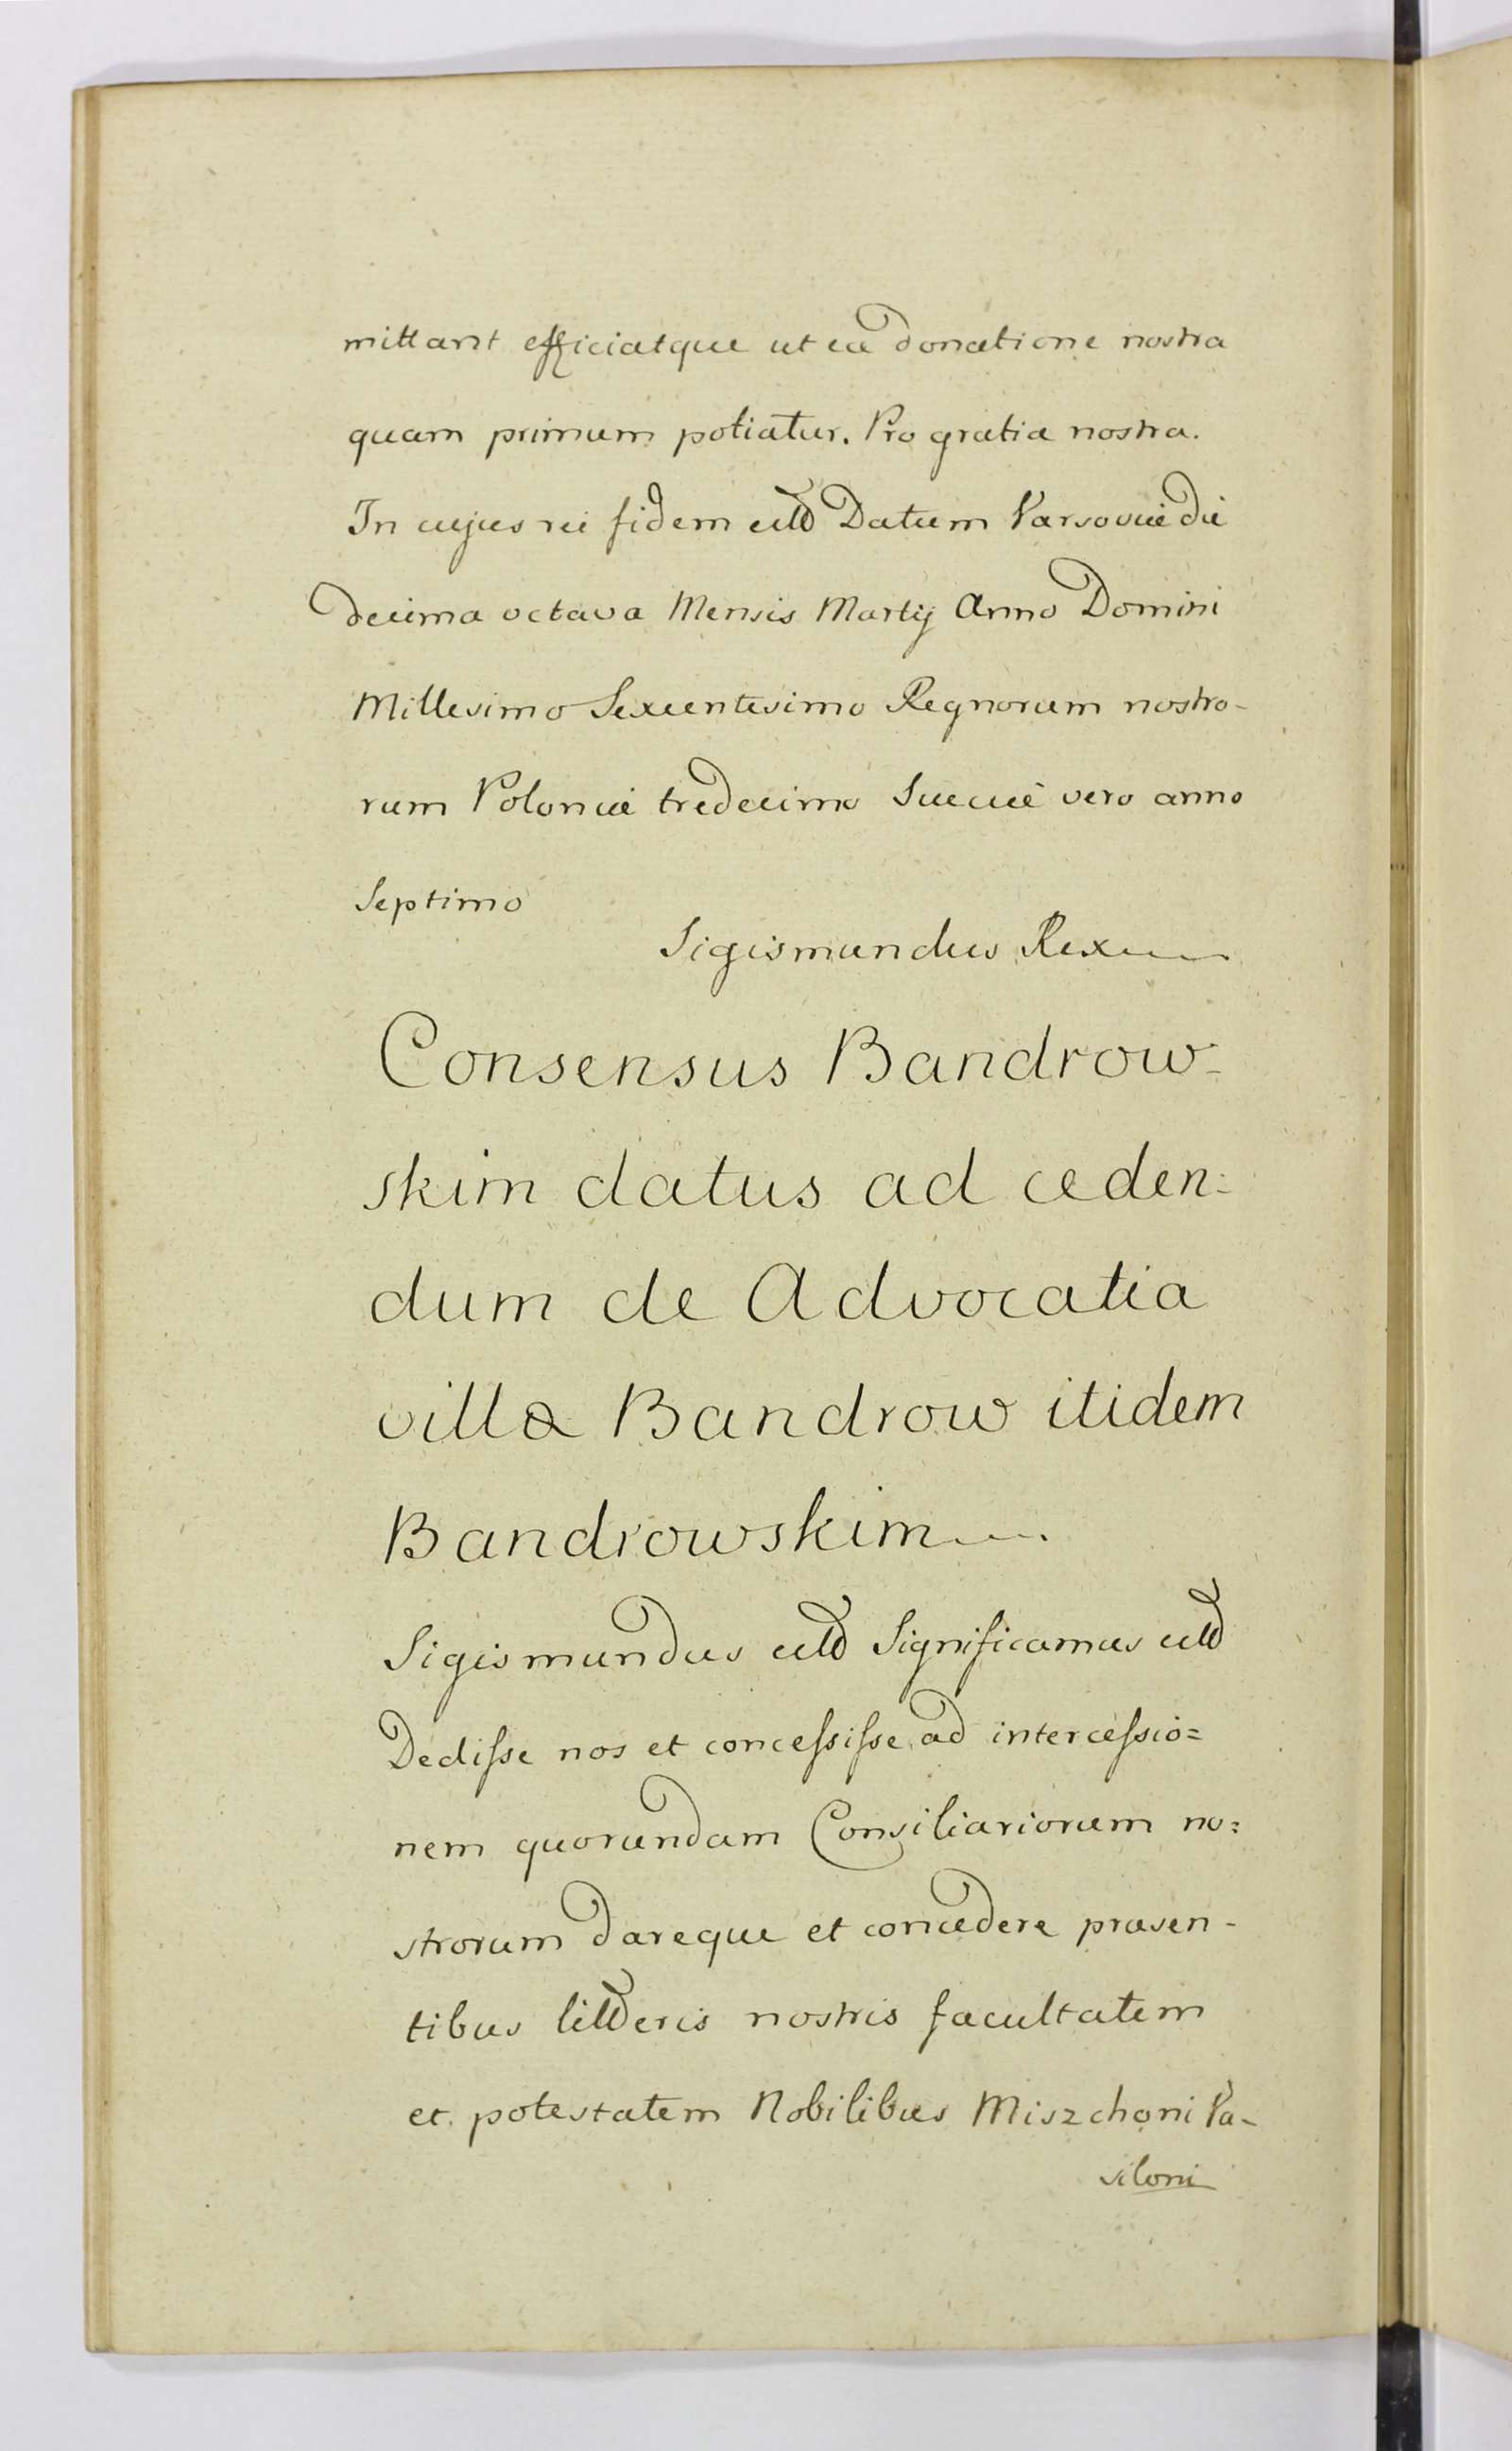 mittant efficiatque ut ea donatione nostra
quam primum potiatur. Pro gratia nostra.
In cujus rei fidem ettc Datum Varsoviæ die
decima octava Mensis Martij Anno Domini
Millesimo Sexcentesimo Regnorum nostro-
rum Poloniæ tredecimo Sueciæ vero anno
Septimo
Sigismundus Rex
Consensus Bandrow-
skim datus ad ceden-
dum de Advocatia
villa Bandrow itidem
Bandrowskim
Sigismundus ettc Significamus ettc
Dedisse nos et concessisse ad intercessio=
nem quorundam Consiliariorum no=
strorum dareque et concedere præsen-
tibus litteris nostris facultatem
et potestatem Nobilibus Miszchoni Va-
siloni